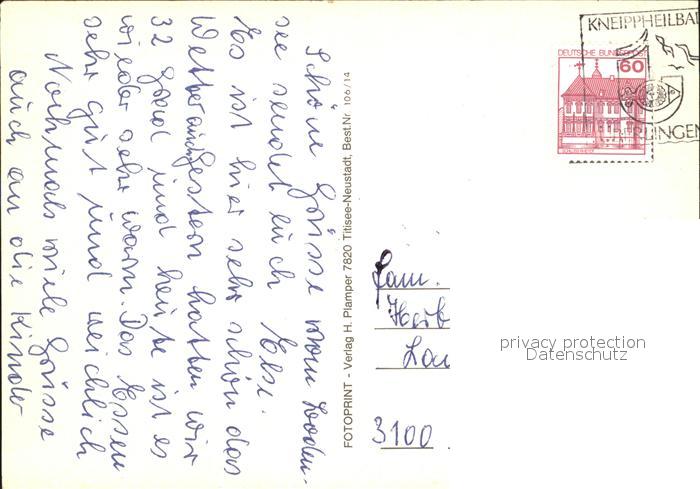 Schöne Grüsse vom Boden-
see sendet Euch Elsi.
Es ist hier sehr schön das
Wetter angestern hatten wir
32 Grad und heute ist es
wieder sehr warm. Das Essen
sehr gut und reichlich
Nochmals viele Grüsse
auch an die Kinder
FOTOPRINT - Verlag H. Plamper 7820 Titisee-Neustadt, Best.Nr. 109/14
DEUTSCHE BUNDESPOST
60
KNEIPPHEILBA
ERLINGEN
Fam.
Herb
3100
privacy protection
Datenschutz